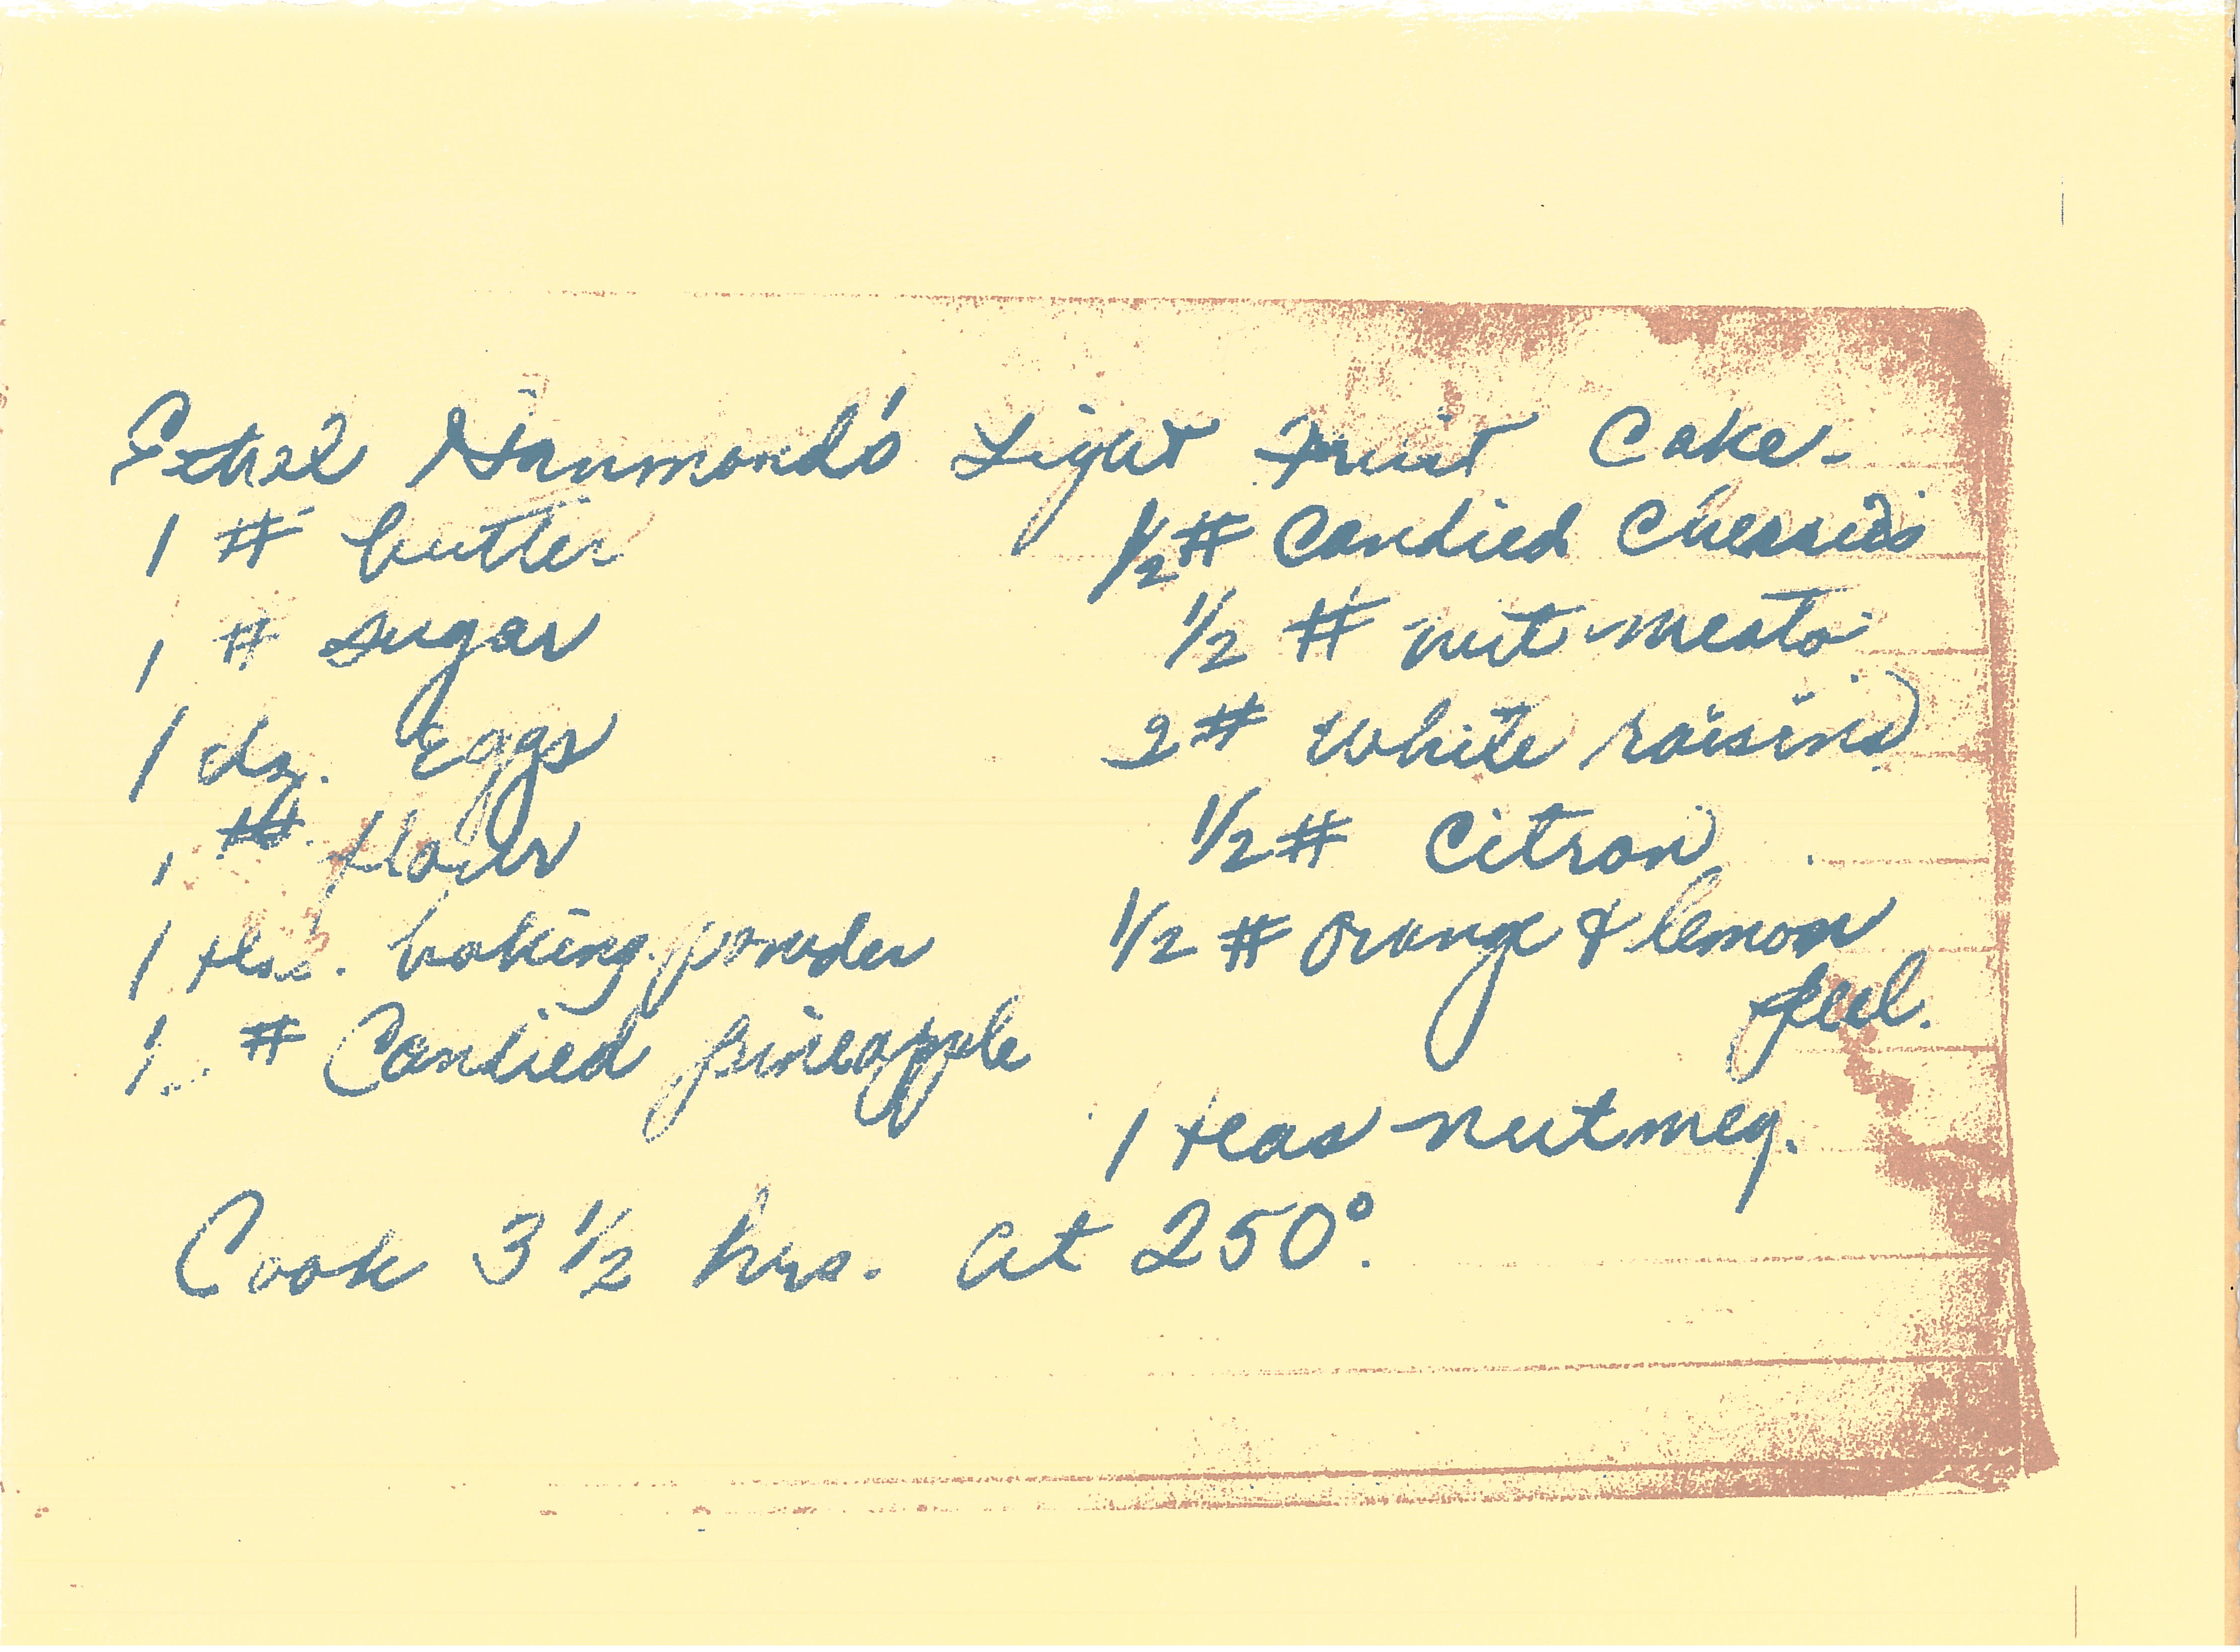 Ethel Hammond's Light Fruit Cake.
1 # butter
1 # sugar
1 dz. Eggs
1 #. flour
1 tbs. baking powder
1 # Candied pineapple
1/2 # Candied Cherries
1/2 # nut meats
2 # white raisins
1/2 # Citron
1/2 # Orange & lemon
peel.
1 teas nutmeg.
Cook 3 1/2 hrs. at 250°.